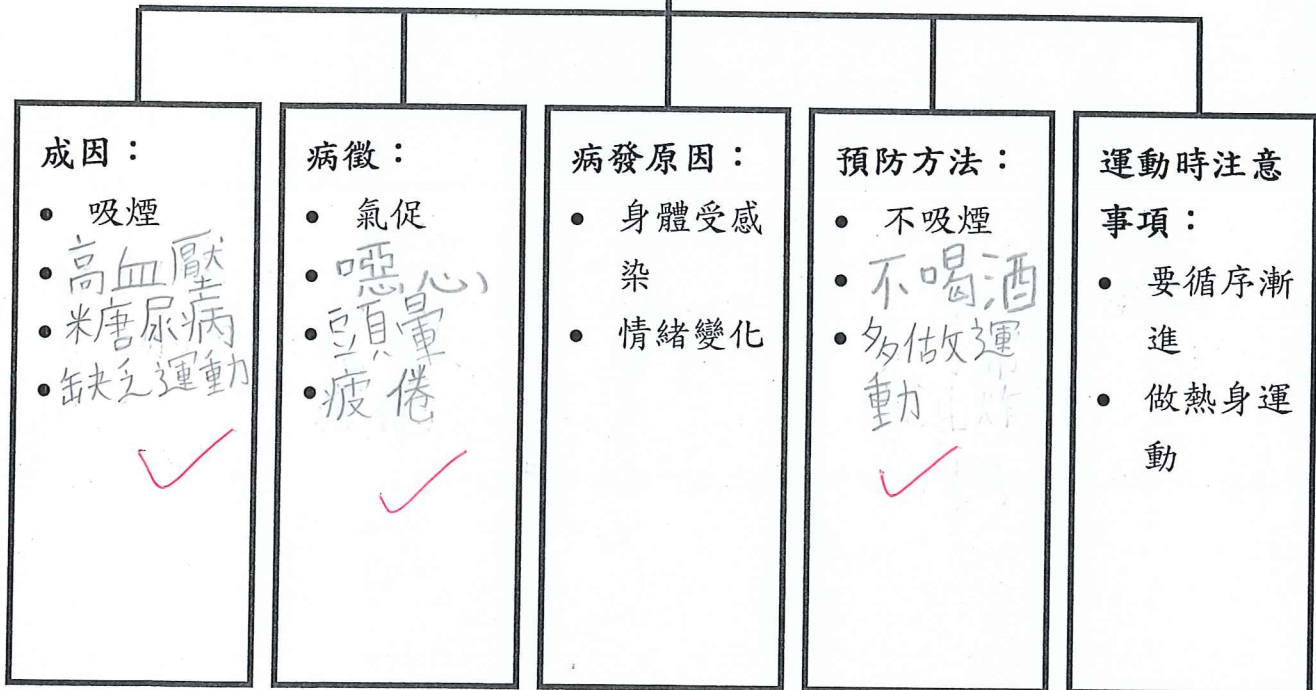 成因：
• 吸煙
• 高血壓
• 糖尿病
• 缺乏運動
病徵：
• 氣促
• 噁心
• 頭暈
• 疲倦
病發原因：
• 身體受感
染
• 情緒變化
預防方法：
• 不吸煙
• 不喝酒
• 多做運
動
運動時注意
事項：
• 要循序漸
進
• 做熱身運
動